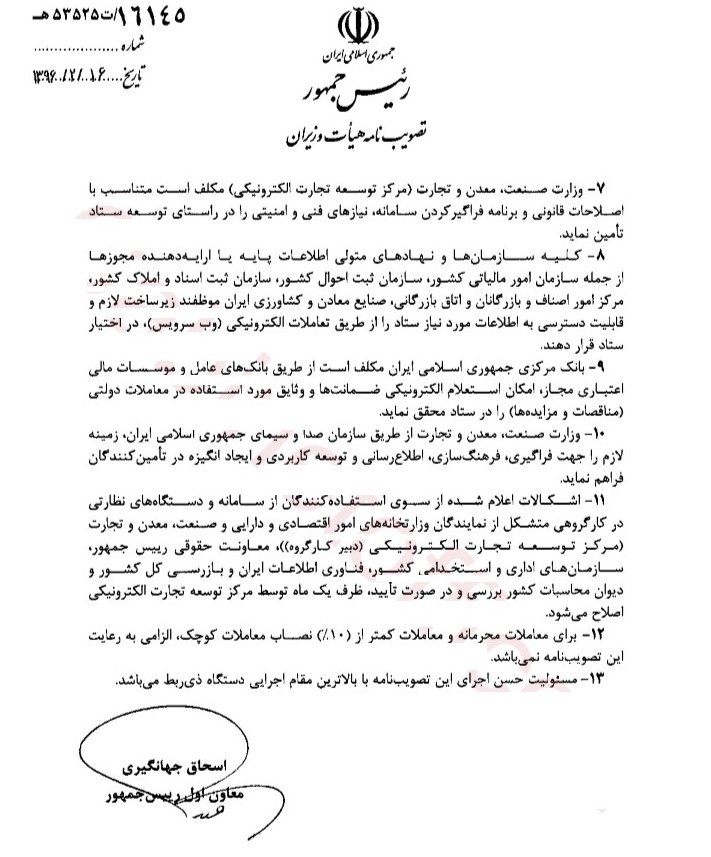 ۱۶۱۴۵/ت۵۳۵۲۵هـ
شماره ....................
تاریخ.....۱۳۹۶/۲/۱۶
جمهوری اسلامی ایران
رئیس جمهور
تصویب نامه هیأت وزیران
۷- وزارت صنعت، معدن و تجارت (مرکز توسعه تجارت الکترونیکی) مکلف است متناسب با
اصلاحات قانونی و برنامه فراگیرکردن سامانه، نیازهای فنی و امنیتی را در راستای توسعه ستاد
تأمین نماید.
۸- کلیه سازمان‌ها و نهادهای متولی اطلاعات پایه یا ارایه‌دهنده مجوزها
از جمله سازمان امور مالیاتی کشور، سازمان ثبت احوال کشور، سازمان ثبت اسناد و املاک کشور،
مرکز امور اصناف و بازرگانان و اتاق بازرگانی، صنایع معادن و کشاورزی ایران موظفند زیرساخت لازم و
قابلیت دسترسی به اطلاعات مورد نیاز ستاد را از طریق تعاملات الکترونیکی (وب سرویس)، در اختیار
ستاد قرار دهند.
۹- بانک مرکزی جمهوری اسلامی ایران مکلف است از طریق بانک‌های عامل و موسسات مالی
اعتباری مجاز، امکان استعلام الکترونیکی ضمانت‌ها و وثایق مورد استفاده در معاملات دولتی
(مناقصات و مزایده‌ها) را در ستاد محقق نماید.
۱۰- وزارت صنعت، معدن و تجارت از طریق سازمان صدا و سیمای جمهوری اسلامی ایران، زمینه
لازم را جهت فراگیری، فرهنگ‌سازی، اطلاع‌رسانی و توسعه کاربردی و ایجاد انگیزه در تأمین‌کنندگان
فراهم نماید.
۱۱- اشکالات اعلام شده از سوی استفاده‌کنندگان از سامانه و دستگاه‌های نظارتی
در کارگروهی متشکل از نمایندگان وزارتخانه‌های امور اقتصادی و دارایی و صنعت، معدن و تجارت
(مرکز توسعه تجارت الکترونیکی (دبیر کارگروه))، معاونت حقوقی رییس جمهور،
سازمان‌های اداری و استخدامی کشور، فناوری اطلاعات ایران و بازرسی کل کشور و
دیوان محاسبات کشور بررسی و در صورت تأیید، ظرف یک ماه توسط مرکز توسعه تجارت الکترونیکی
اصلاح می‌شود.
۱۲- برای معاملات محرمانه و معاملات کمتر از (۱۰٪) نصاب معاملات کوچک، الزامی به رعایت
این تصویب‌نامه نمی‌باشد.
۱۳- مسئولیت حسن اجرای این تصویب‌نامه با بالاترین مقام اجرایی دستگاه ذی‌ربط می‌باشد.
اسحاق جهانگیری
معاون اول رییس‌جمهور